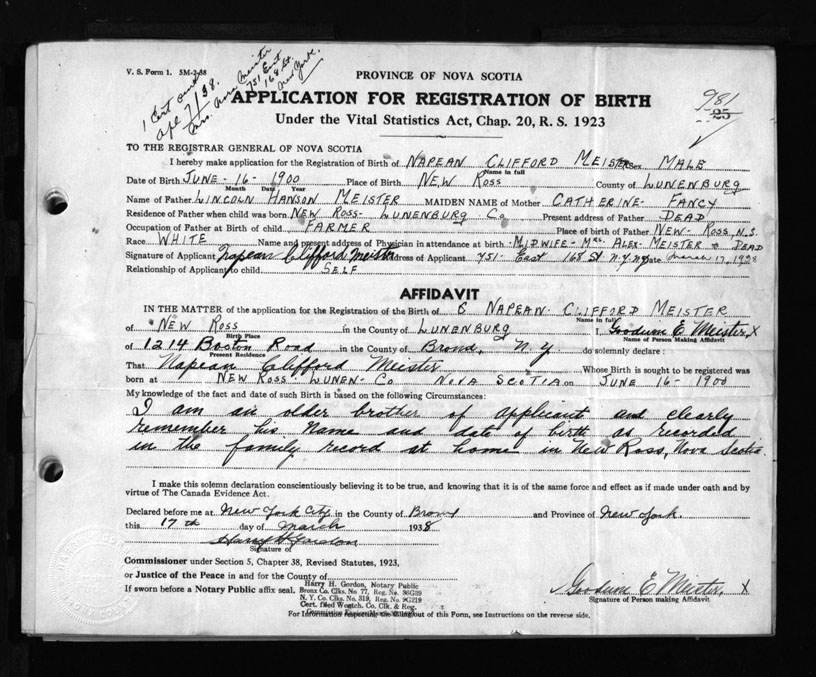 V. S. Form 1. 5M-2-38
1 Cert sent
Apl 7/38.
Mrs. Meister
751 East
168 St.
New York.
PROVINCE OF NOVA SCOTIA
APPLICATION FOR REGISTRATION OF BIRTH
981
25
Under the Vital Statistics Act, Chap. 20, R. S. 1923
TO THE REGISTRAR GENERAL OF NOVA SCOTIA
I hereby make application for the Registration of Birth of NAPEAN CLIFFORD MEISTER Sex MALE
Name in full
Date of Birth JUNE - 16 - 1900 Place of Birth NEW ROSS County of LUNENBURG
Month Date Year
Name of Father LINCOLN HANSON MEISTER MAIDEN NAME of Mother CATHERINE - FANCY
Residence of Father when child was born NEW ROSS - LUNENBURG Co Present address of Father DEAD
Occupation of Father at Birth of child FARMER Place of birth of Father NEW - ROSS, N.S.
Race WHITE Name and present address of Physician in attendance at birth MIDWIFE - MRS. ALEX - MEISTER DEAD
Signature of Applicant Napean Clifford Meister Address of Applicant 751 - East 168 St. N.Y. NY Date March 17, 1938
Relationship of Applicant to child SELF
AFFIDAVIT
IN THE MATTER of the application for the Registration of the Birth of NAPEAN CLIFFORD MEISTER
Name in full
of NEW ROSS in the County of LUNENBURG I, Goodwin E Meister, X
Birth Place Name of Person Making Affidavit
of 1214 Boston Road in the County of Bronx, N. Y do solemnly declare :
Present Residence
That Napean Clifford Meister Whose Birth is sought to be registered was
born at NEW ROSS - LUNEN - Co NOVA SCOTIA on JUNE 16 - 1900
My knowledge of the fact and date of such Birth is based on the following Circumstances:
I am an older brother of applicant and clearly
remember his name and date of birth as recorded
in the family record at home in New Ross, Nova Scotia.
I make this solemn declaration conscientiously believing it to be true, and knowing that it is of the same force and effect as if made under oath and by
virtue of The Canada Evidence Act.
Declared before me at New York City in the County of Bronx and Province of New York.
this 17th day of March 1938
Harry H Gordon
Signature of
Commissioner under Section 5, Chapter 38, Revised Statutes, 1923,
or Justice of the Peace in and for the County of
If sworn before a Notary Public affix seal.
Harry H. Gordon, Notary Public
Bronx Co. Clks. No 77, Reg. No. 36G39
N. Y. Co. Clks. No. 319, Reg. No. 9G219
Cert. filed Westch. Co. Clk. & Reg.
Goodwin E Meister, X
Signature of Person making Affidavit
For Information respecting the filling out of this Form, see Instructions on the reverse side.